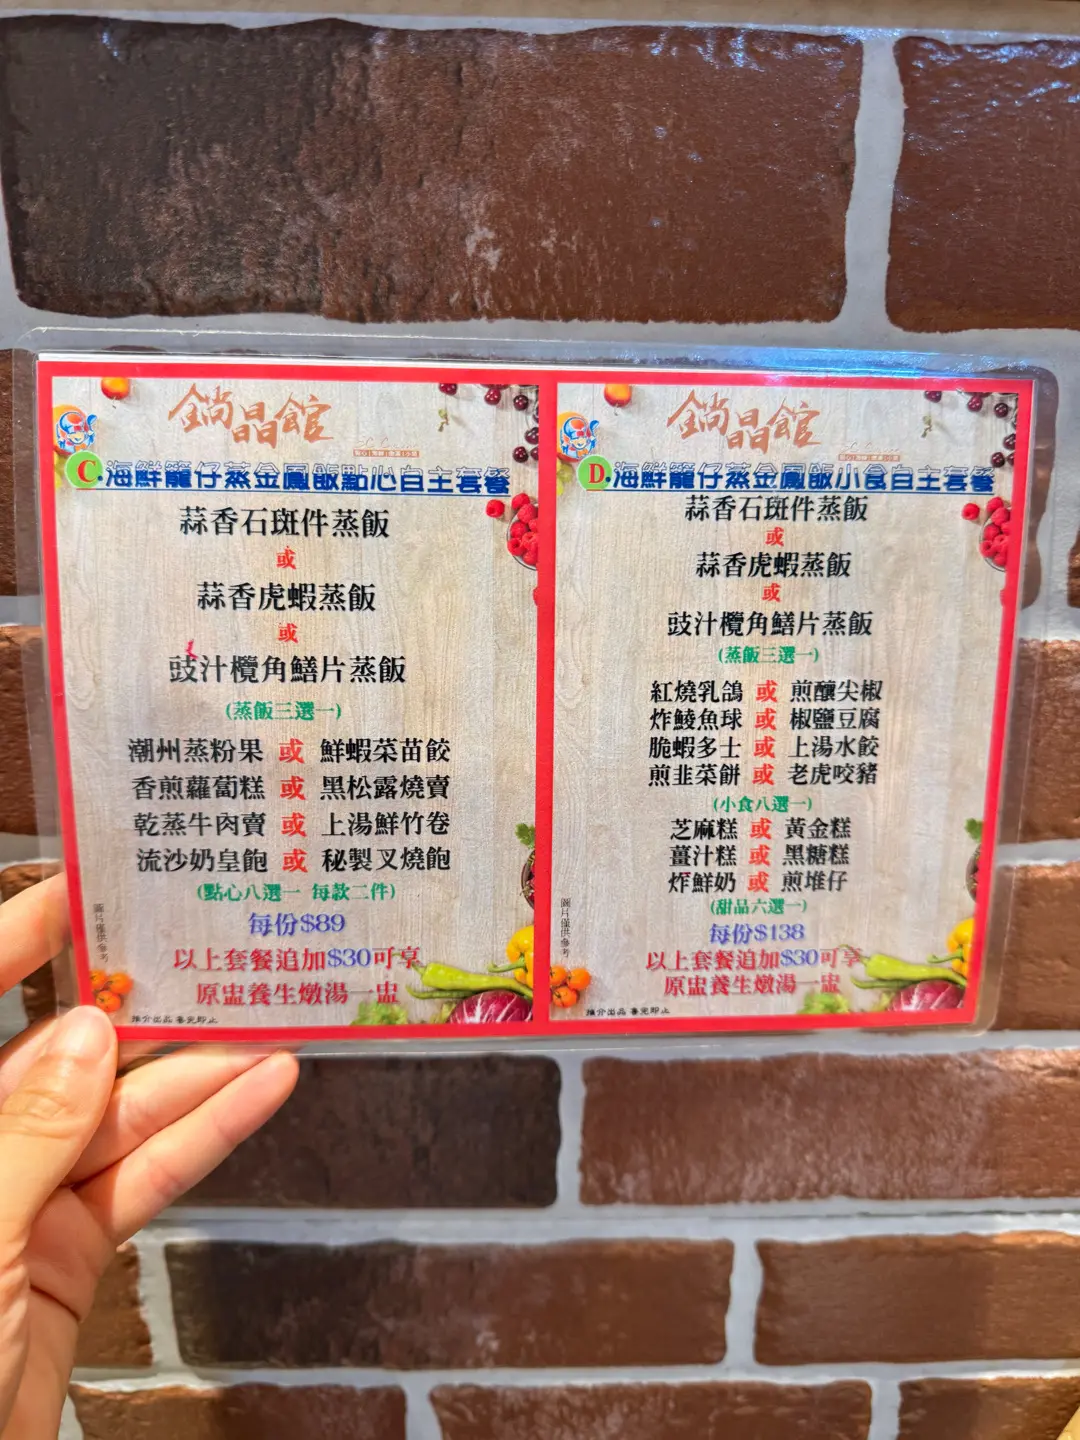 鋿晶館
C.海鮮籠仔蒸金鳳飯點心自主套餐
蒜香石斑件蒸飯
或
蒜香虎蝦蒸飯
或
豉汁欖角鱔片蒸飯
(蒸飯三選一)
潮州蒸粉果 或 鮮蝦菜苗餃
香煎蘿蔔糕 或 黑松露燒賣
乾蒸牛肉賣 或 上湯鮮竹卷
流沙奶皇飽 或 秘製叉燒飽
(點心八選一 每款二件)
每份$89
以上套餐追加$30可享
原盅養生燉湯一盅
圖片僅供參考
推介出品 售完即止
鋿晶館
D.海鮮籠仔蒸金鳳飯小食自主套餐
蒜香石斑件蒸飯
或
蒜香虎蝦蒸飯
或
豉汁欖角鱔片蒸飯
(蒸飯三選一)
紅燒乳鴿 或 煎釀尖椒
炸鯪魚球 或 椒鹽豆腐
脆蝦多士 或 上湯水餃
煎韭菜餅 或 老虎咬豬
(小食八選一)
芝麻糕 或 黃金糕
薑汁糕 或 黑糖糕
炸鮮奶 或 煎堆仔
(甜品六選一)
每份$138
以上套餐追加$30可享
原盅養生燉湯一盅
圖片僅供參考
推介出品 售完即止